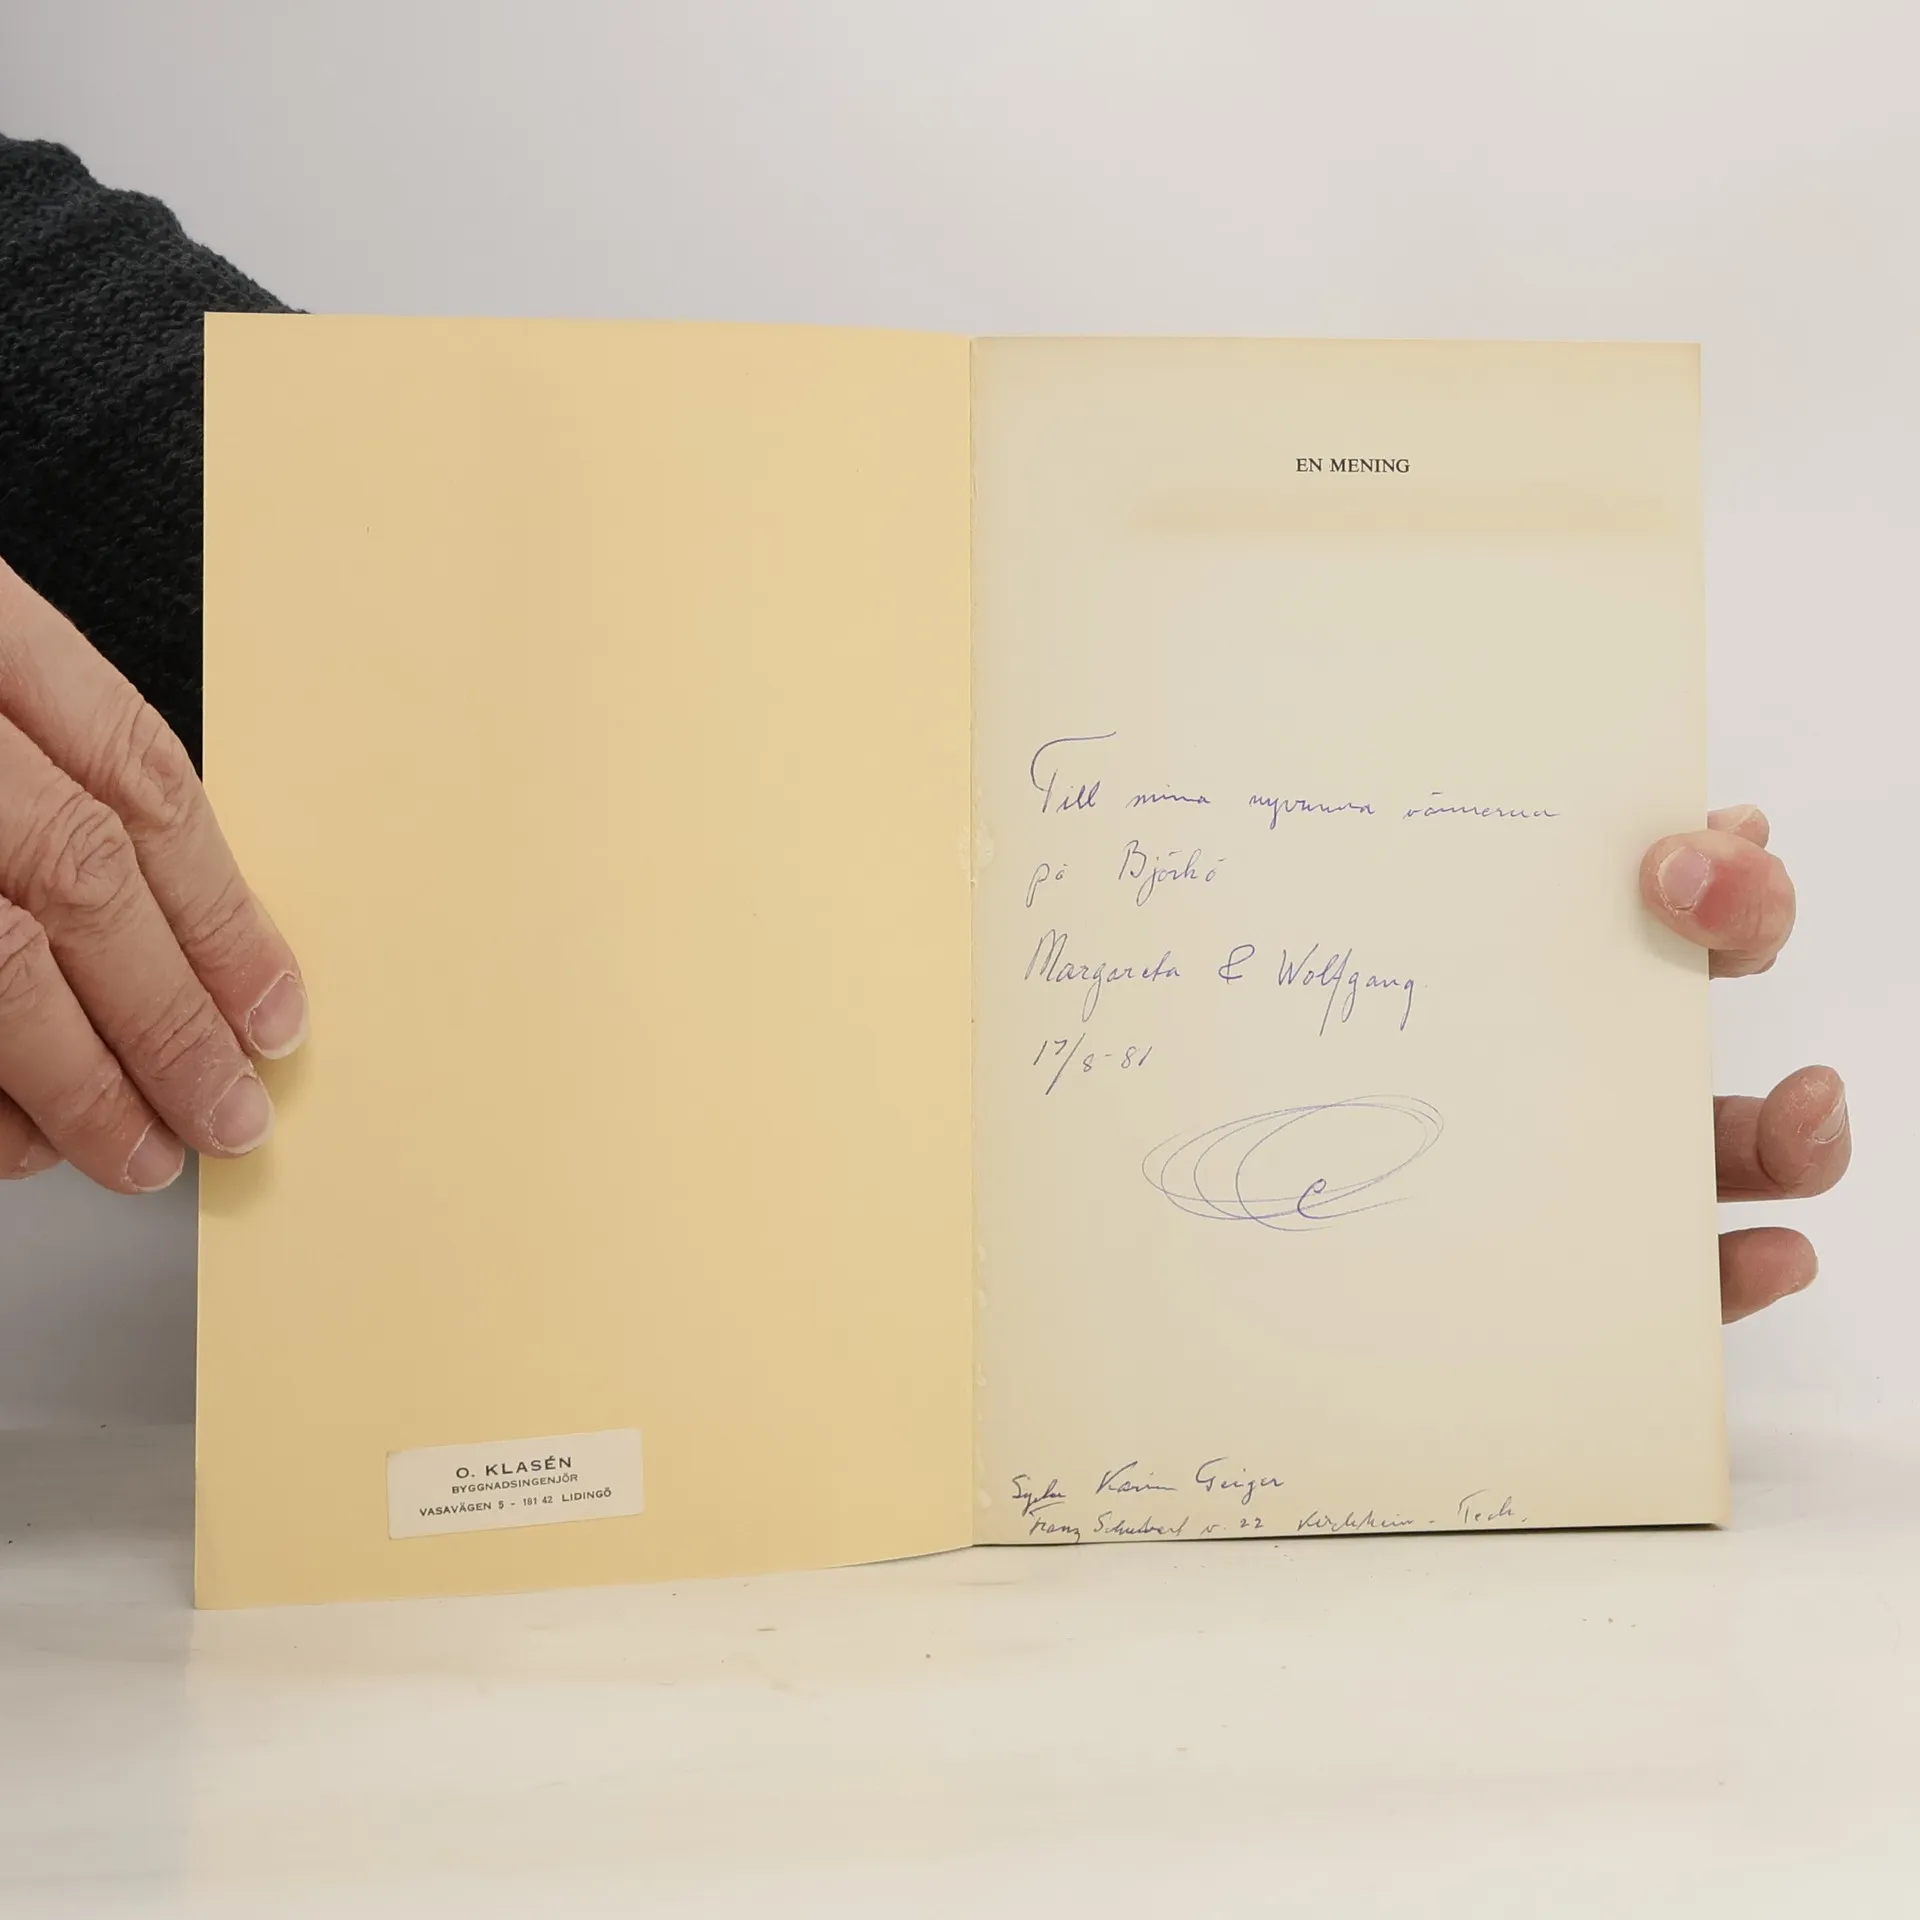 O. KLASÉN
BYGGNADSINGENJÖR
VASAVÄGEN 5 - 181 42 LIDINGÖ
EN MENING
Till mina nyvunna vännerna
på Björkö
Margareta & Wolfgang.
17/8-81
Karin Geiger
Franz Schubert v. 22 Kirchheim - Teck.